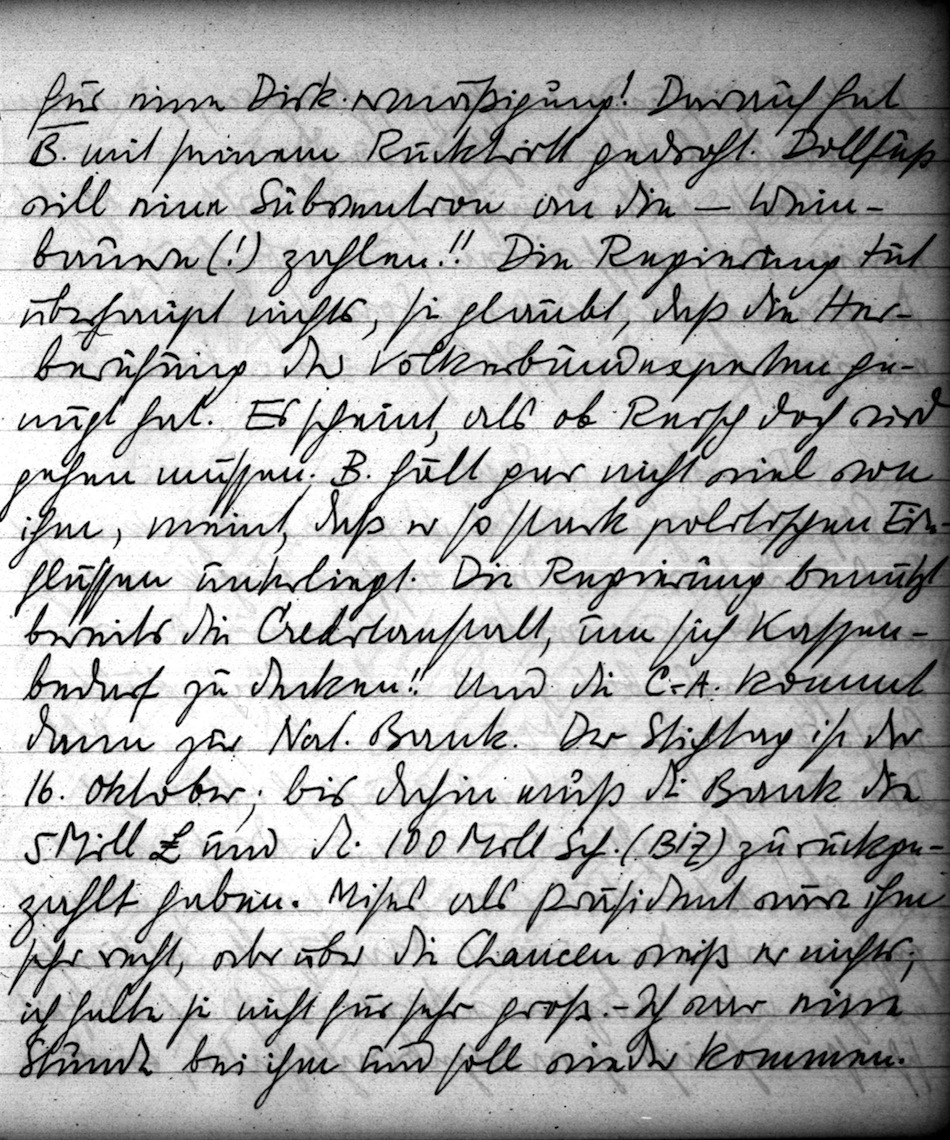 für eine Disk.ermäßigung! Darauf hat
B. mit seinem Rücktritt gedroht. Dollfuß
will eine Subvention an die – Wein-
bauern (!) zahlen!! Die Regierung tut
überhaupt nichts, sie glaubt, daß die Her-
beruhung des Völkerbundexperten ge-
nügt hat. Es scheint, als ob Reisch doch wird
gehen müssen; B. hält gar nicht viel von
ihm, meint, daß er so stark politischen Ein-
flüssen unterliegt. Die Regierung benützt
bereits die Creditanstalt, um sich Kassen-
bedarf zu decken!! Und die C-A. kommt
dann zur Nat. Bank. Der Stichtag ist der
16. Oktober; bis dahin muß die Bank die
5 Mill £ und d. 100 Mill Sch. (BIZ) zurückge-
zahlt haben. Mises als Präsident wäre ihm
sehr recht, aber über die Chancen weiß er nichts;
ich halte sie nicht für sehr groß. – Ich war eine
Stunde bei ihm und soll wieder kommen.